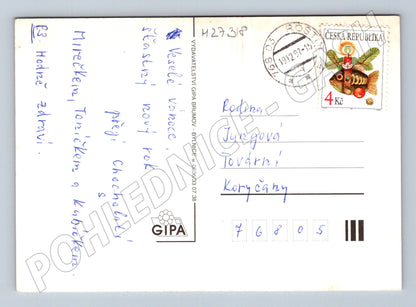 Veselé vánoce
šťastný nový rok
přejí Chocholatí
s
Mirečkem, Toníčkem a Kubíčkem.
PS Hodně zdraví.
VYDAVATELSTVÍ GIPA BRUMOV - BYLNICE
GIPA
427318
768 05
ČESKÁ REPUBLIKA
4 Kč
Rodina
Jungová
Tovární
Koryčany
7 6 8 0 5
POHLEDNICE - CZ